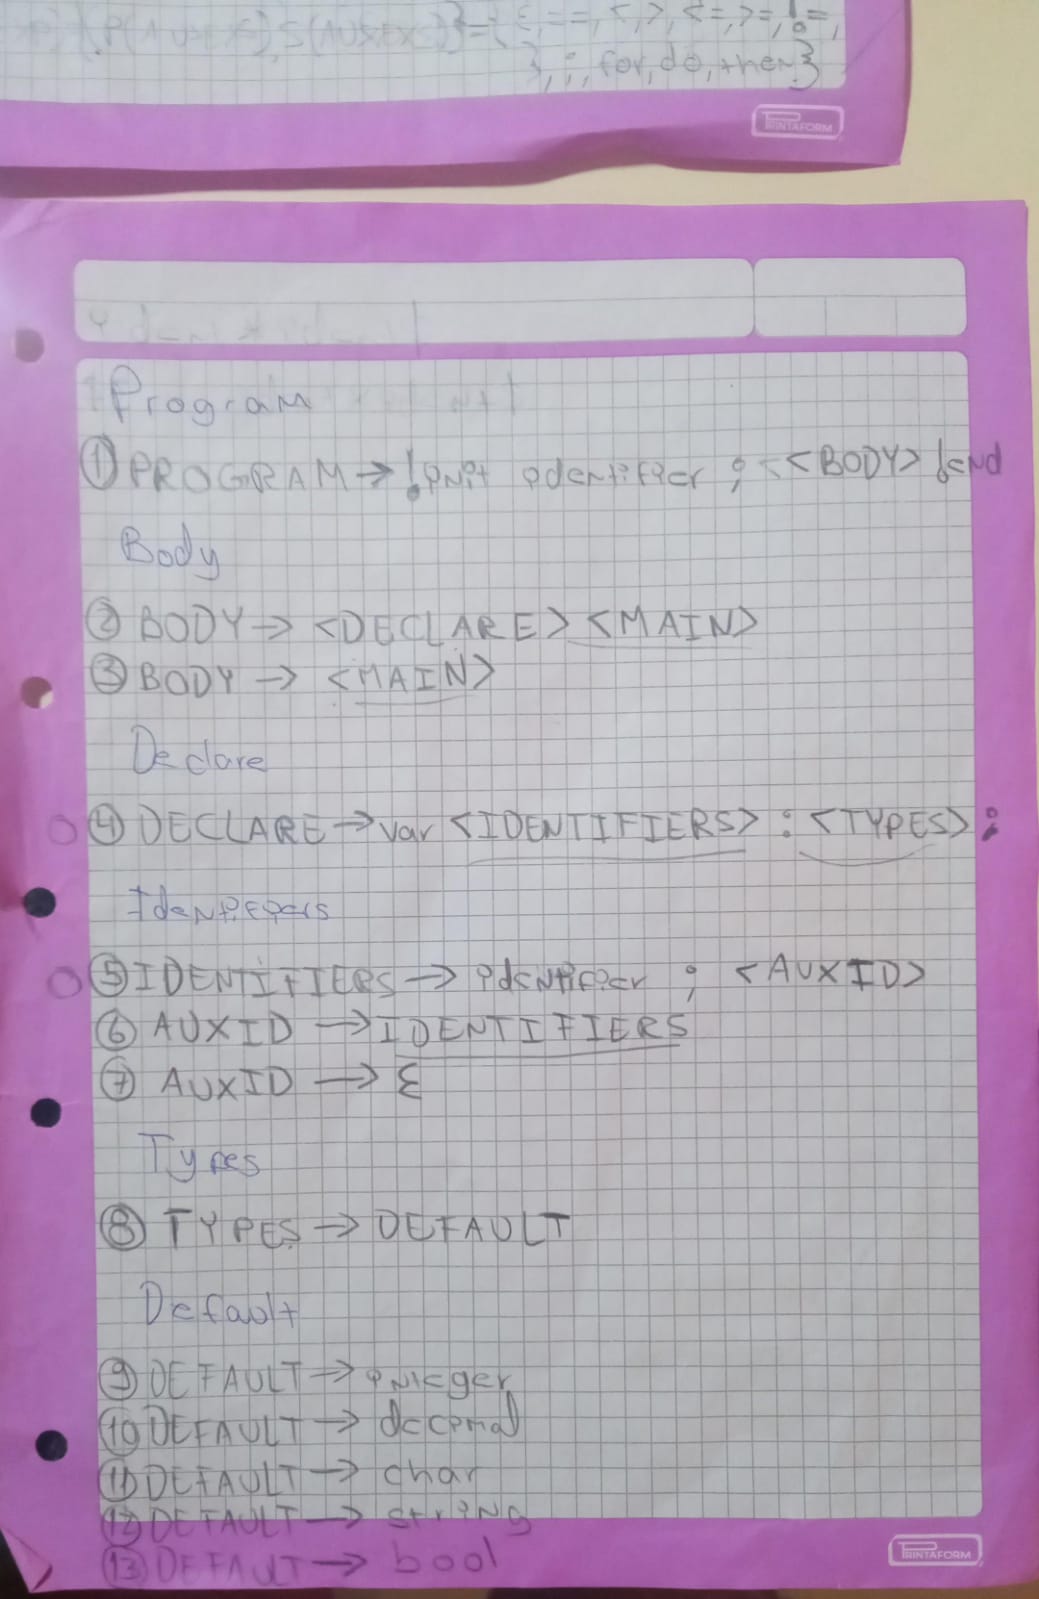 ε, ==, <, >, <=, >=, !=,
}, ;, for, do, then}
PRINTAFORM
Program
① PROGRAM → !init identifier ; <BODY> !end
Body
② BODY → <DECLARE> <MAIN>
③ BODY → <MAIN>
Declare
④ DECLARE → var <IDENTIFIERS> : <TYPES> ;
Identifiers
⑤ IDENTIFIERS → identifier ; <AUXID>
⑥ AUXID → IDENTIFIERS
⑦ AUXID → ε
Types
⑧ TYPES → DEFAULT
Default
⑨ DEFAULT → integer
⑩ DEFAULT → decimal
⑪ DEFAULT → char
⑫ DEFAULT → string
⑬ DEFAULT → bool
PRINTAFORM